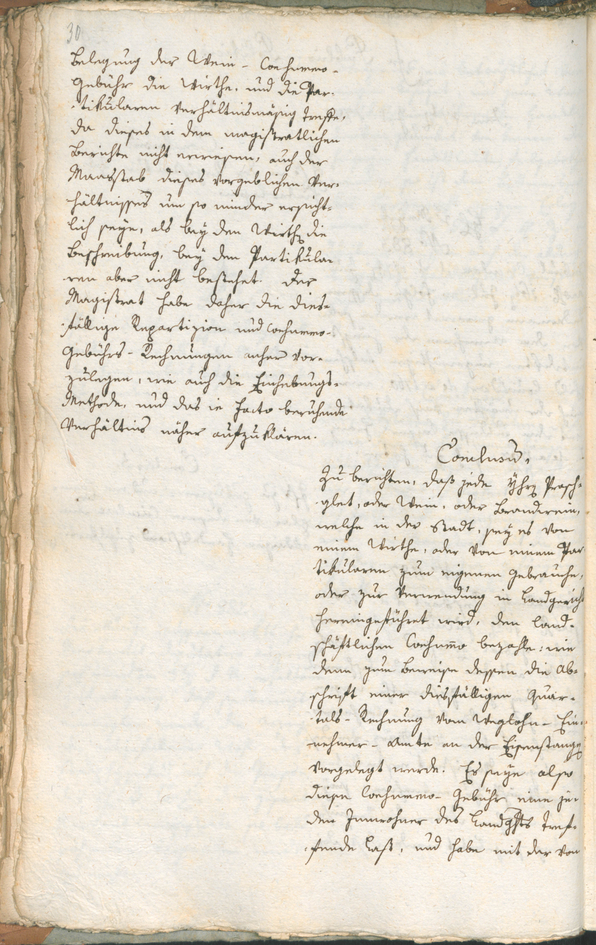 30
Belegung der Wein-Consummo-
Gebühr die Wirthe, und die Par-
tikularen verhältnismäsig treffe,
da dieses in dem magistratlichen
Berichte nicht erwiesen, auch der
Maasstab dieses vorgeblichen Ver-
hältnisses um so minder ersicht-
lich seye, als bey den Wirth die
Beschreibung, bey den Partikula-
ren aber nicht bestehet. Der
Magistrat habe daher die dies-
fällige Repartizion und Consummo-
Gebührs-Rechnungen anher vor-
zulegen, wie auch die Einhebungs-
Methode, und das in facto beruhende
Verhältnis näher aufzuklären.
Conclusum,
Zu berichten, daß jede Yhrn Prasch-
glet, oder Wein, oder Brandwein,
welche in der Stadt, sey es von
einem Wirthe, oder von einem Par
tikularen zum eigenen Gebrauche,
oder zur Verwendung in Landgericht
hereingeführet wird, den land-
schäftlichen Consumo bezahle: wie
denn zum Beweise dessen die Ab-
schrift einer diesfälligen Quar-
tals-Rechnung vom Weglohn-Ein-
nehmer-Amte an der Eisenstange
vorgelegt werde. Es seye also
diese Consummo-Gebühr eine je-
den Innwohner des Landghts tref-
fende Last, und habe mit der von